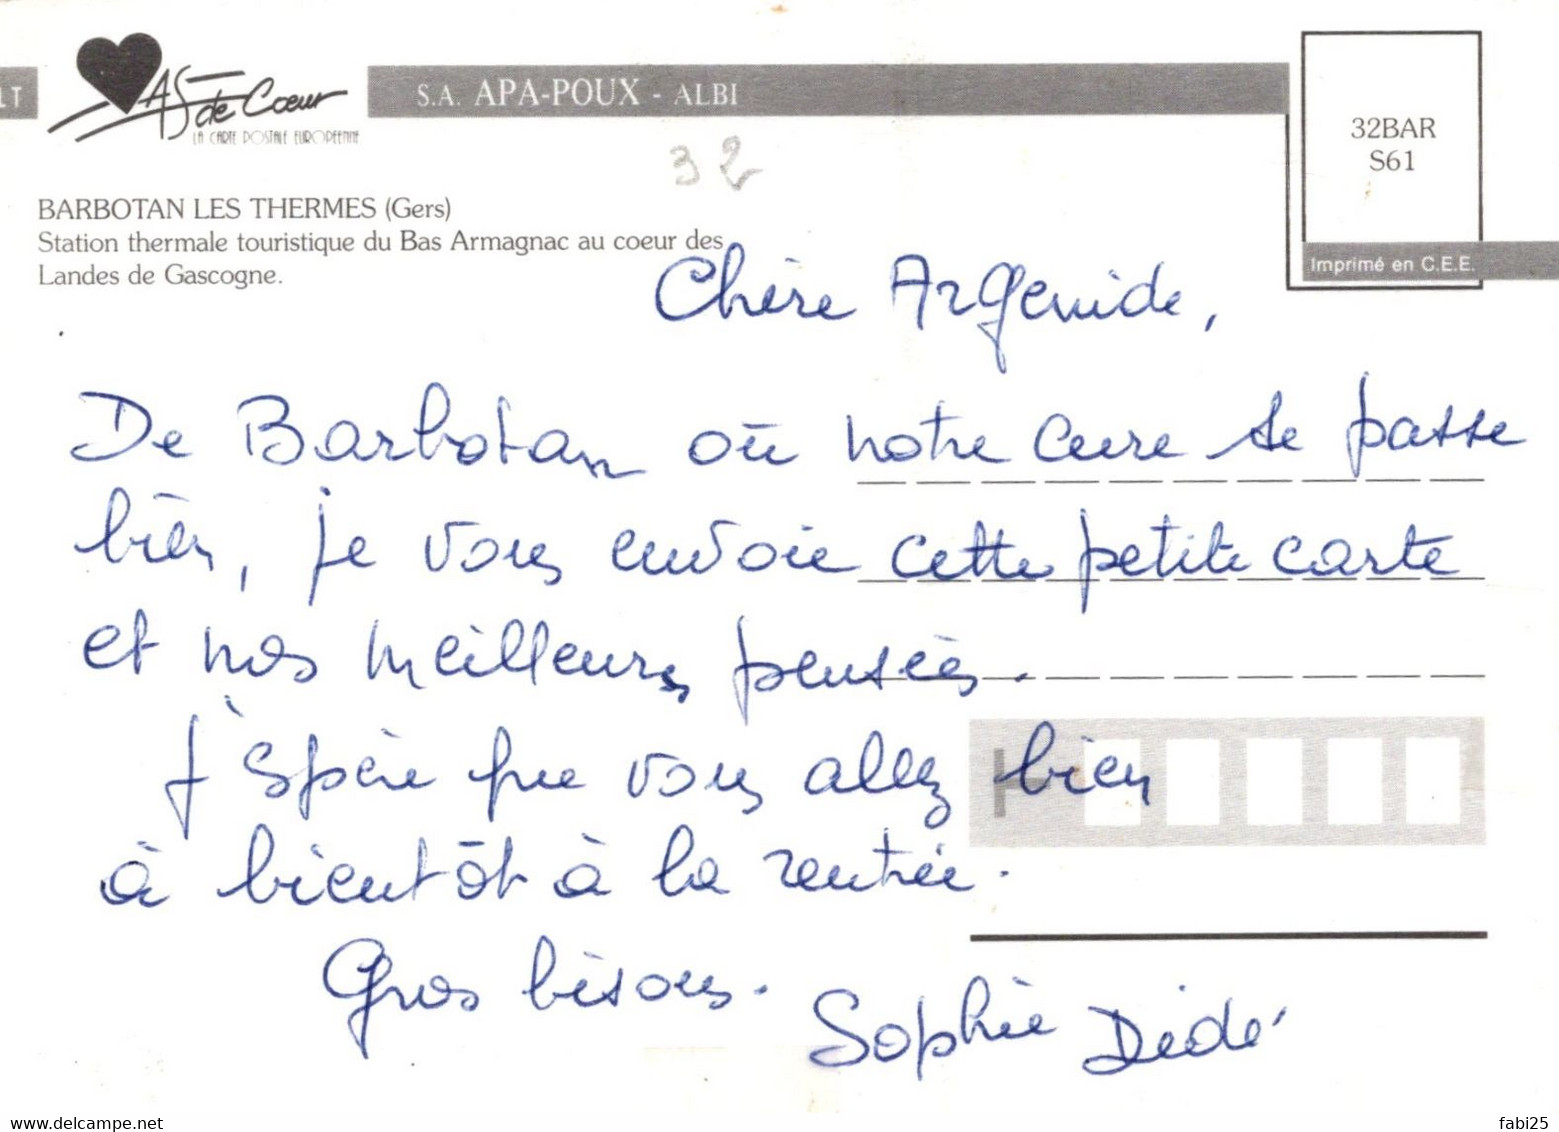 LT
AS de Coeur
LA CARTE POSTALE EUROPÉENNE
S.A. APA-POUX - ALBI
32
32BAR
S61
BARBOTAN LES THERMES (Gers)
Station thermale touristique du Bas Armagnac au coeur des
Landes de Gascogne.
Imprimé en C.E.E.
Chère Argenide,
De Barbotan où notre cure se passe
bien, je vous envoie cette petite carte
et nos meilleures pensées.
J'espère que vous allez bien
à bientôt à la rentrée.
Gros bisous. Sophie Dédé
delcampe.net
fabi25